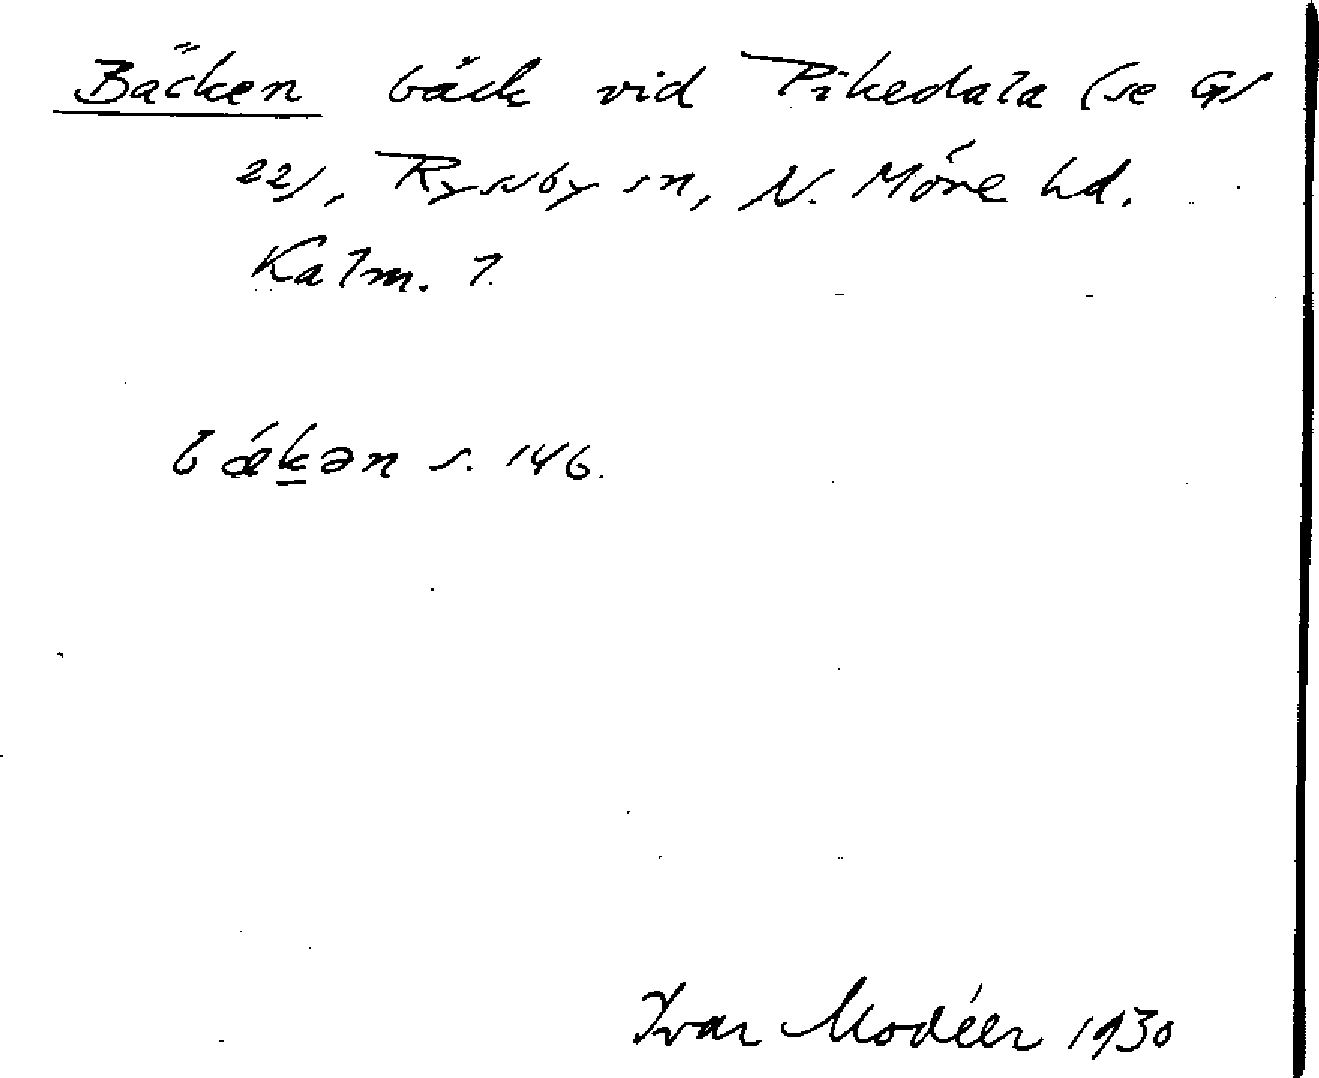 Bäcken bäck vid Pikedala (se GS
22), Ryssby sn, N. Möre hd.
Kalm. l.
bǽk̲ən s. 146.
Ivar Modéer 1930